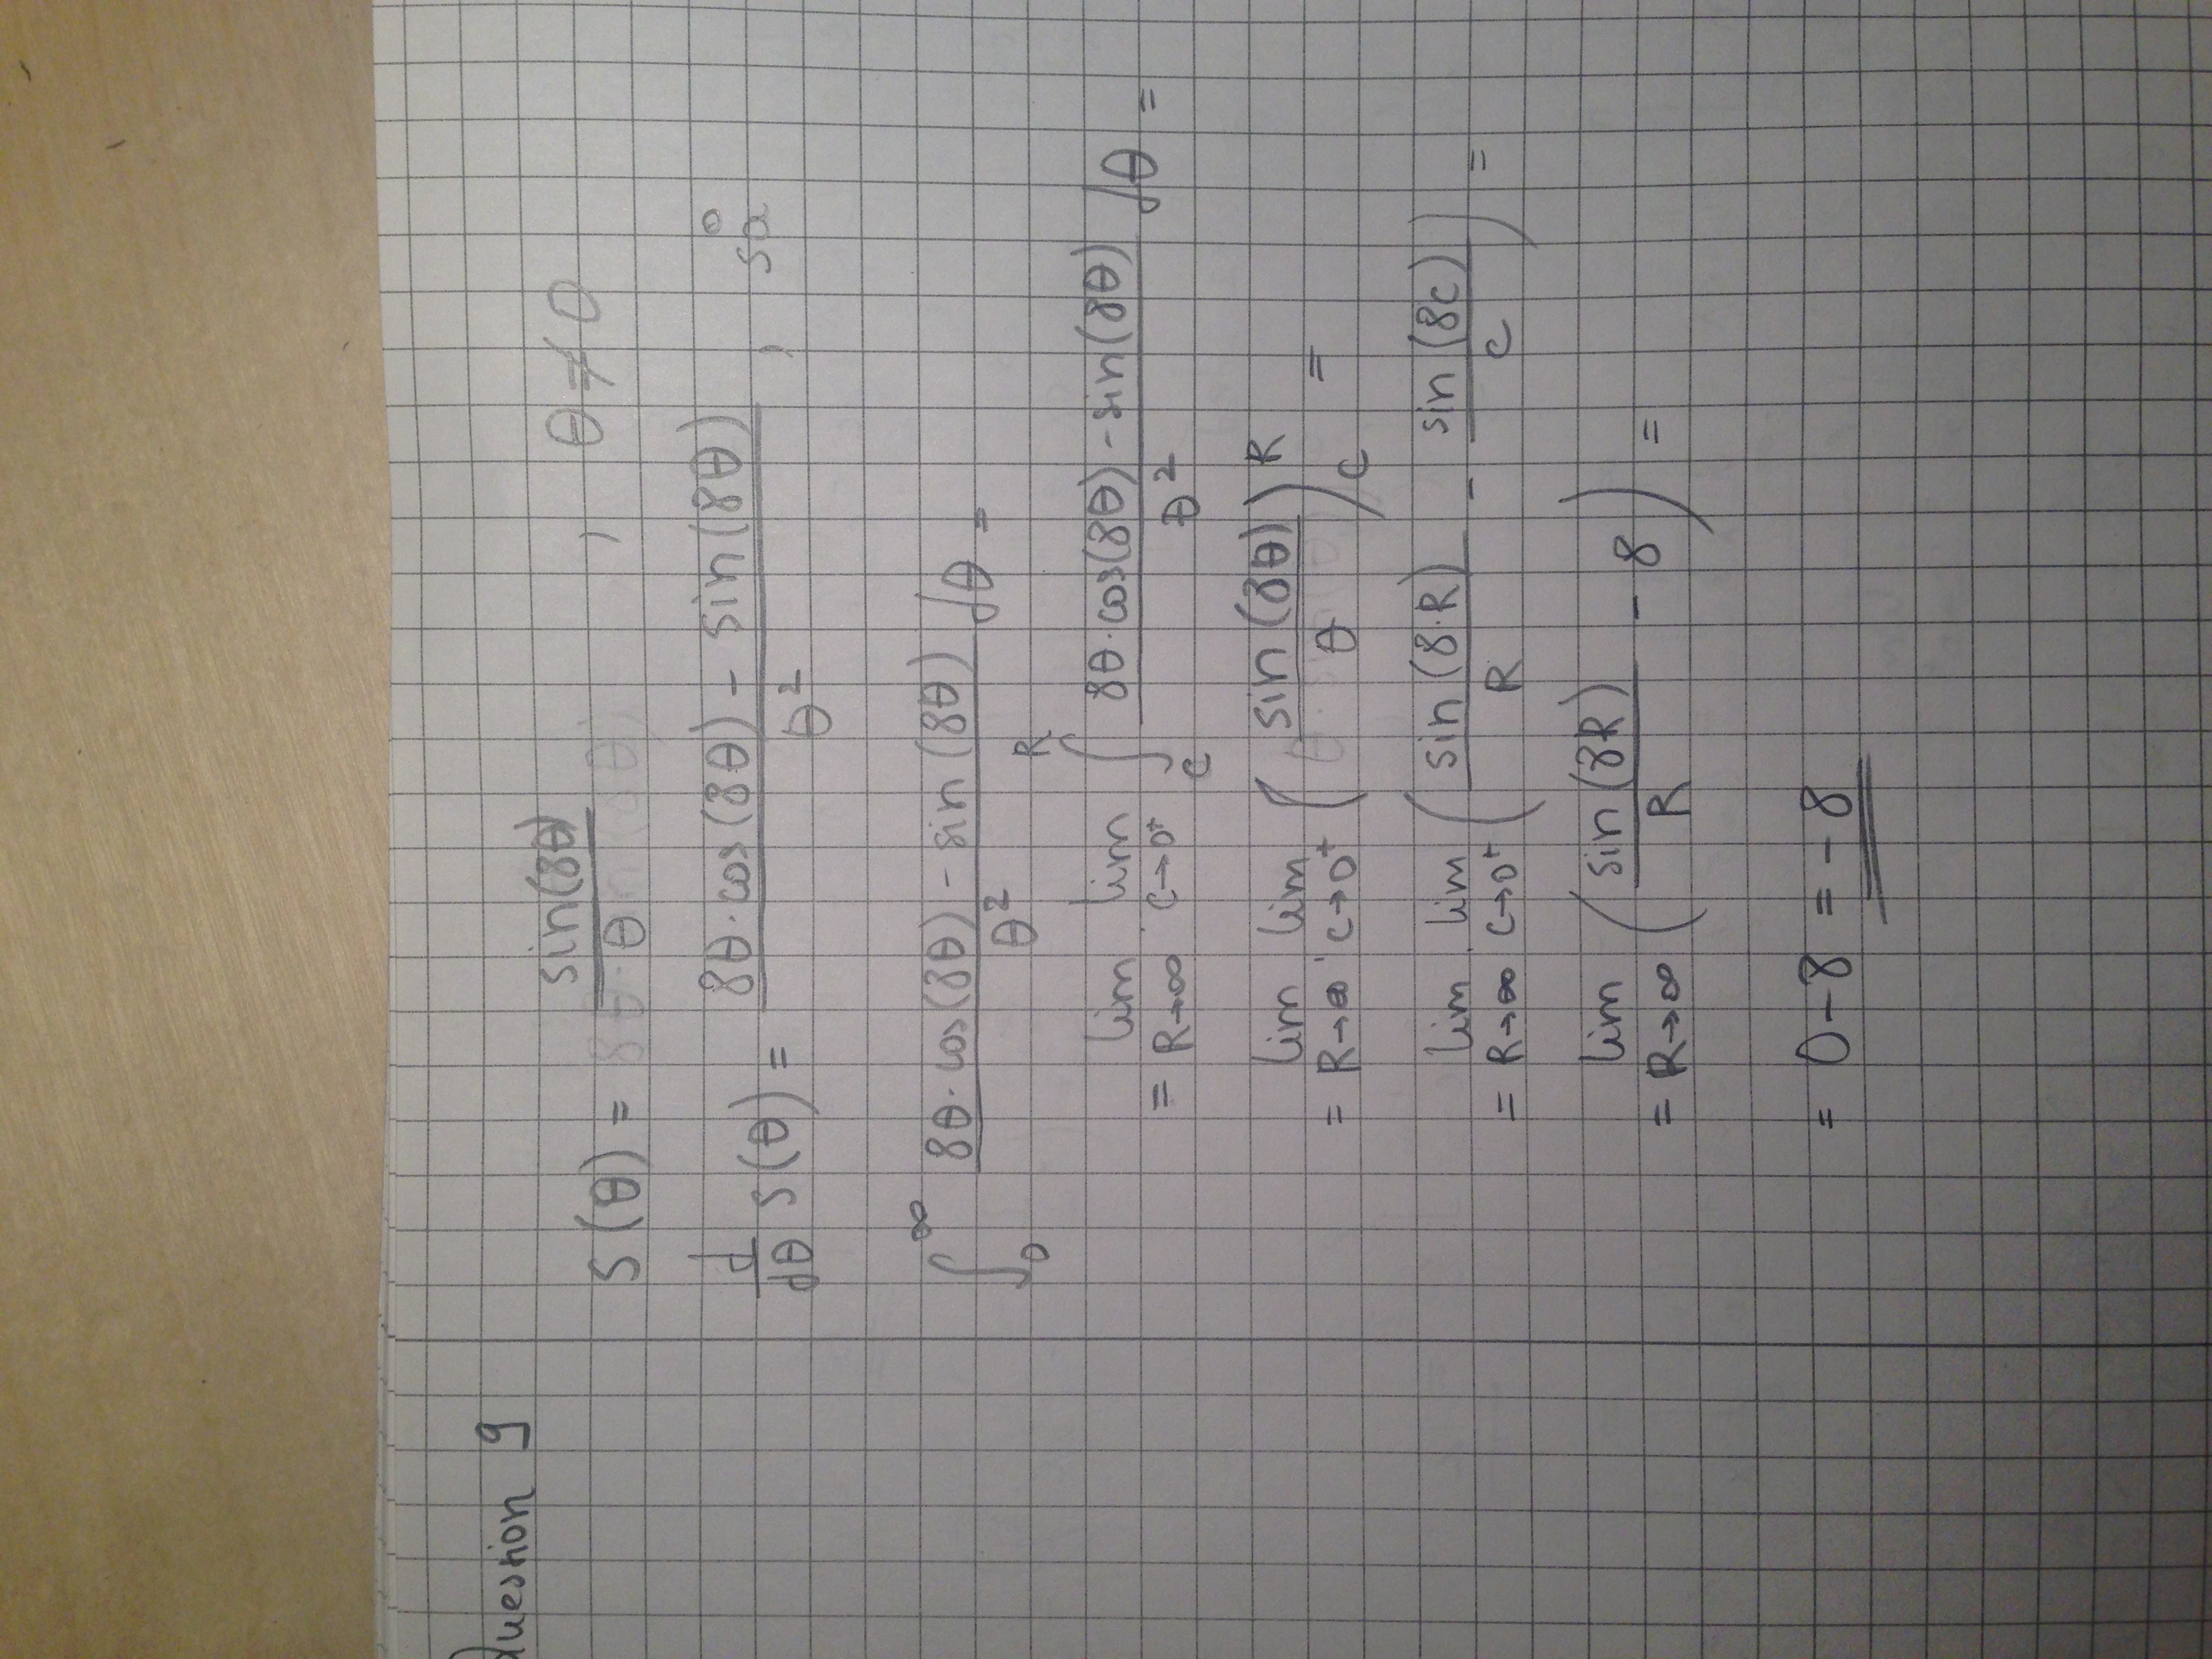 Question 9
S(θ) = sin(8θ)/θ , θ ≠ 0
d/dθ S(θ) = (8θ·cos(8θ) - sin(8θ))/θ² , så
∫₀^∞ (8θ·cos(8θ) - sin(8θ))/θ² dθ =
= lim R→∞ · lim c→0⁺ ∫_c^R (8θ·cos(8θ) - sin(8θ))/θ² dθ =
= lim R→∞ · lim c→0⁺ (sin(8θ)/θ)_c^R =
= lim R→∞ · lim c→0⁺ (sin(8·R)/R - sin(8c)/c) =
= lim R→∞ (sin(8R)/R - 8) =
= 0 - 8 = -8